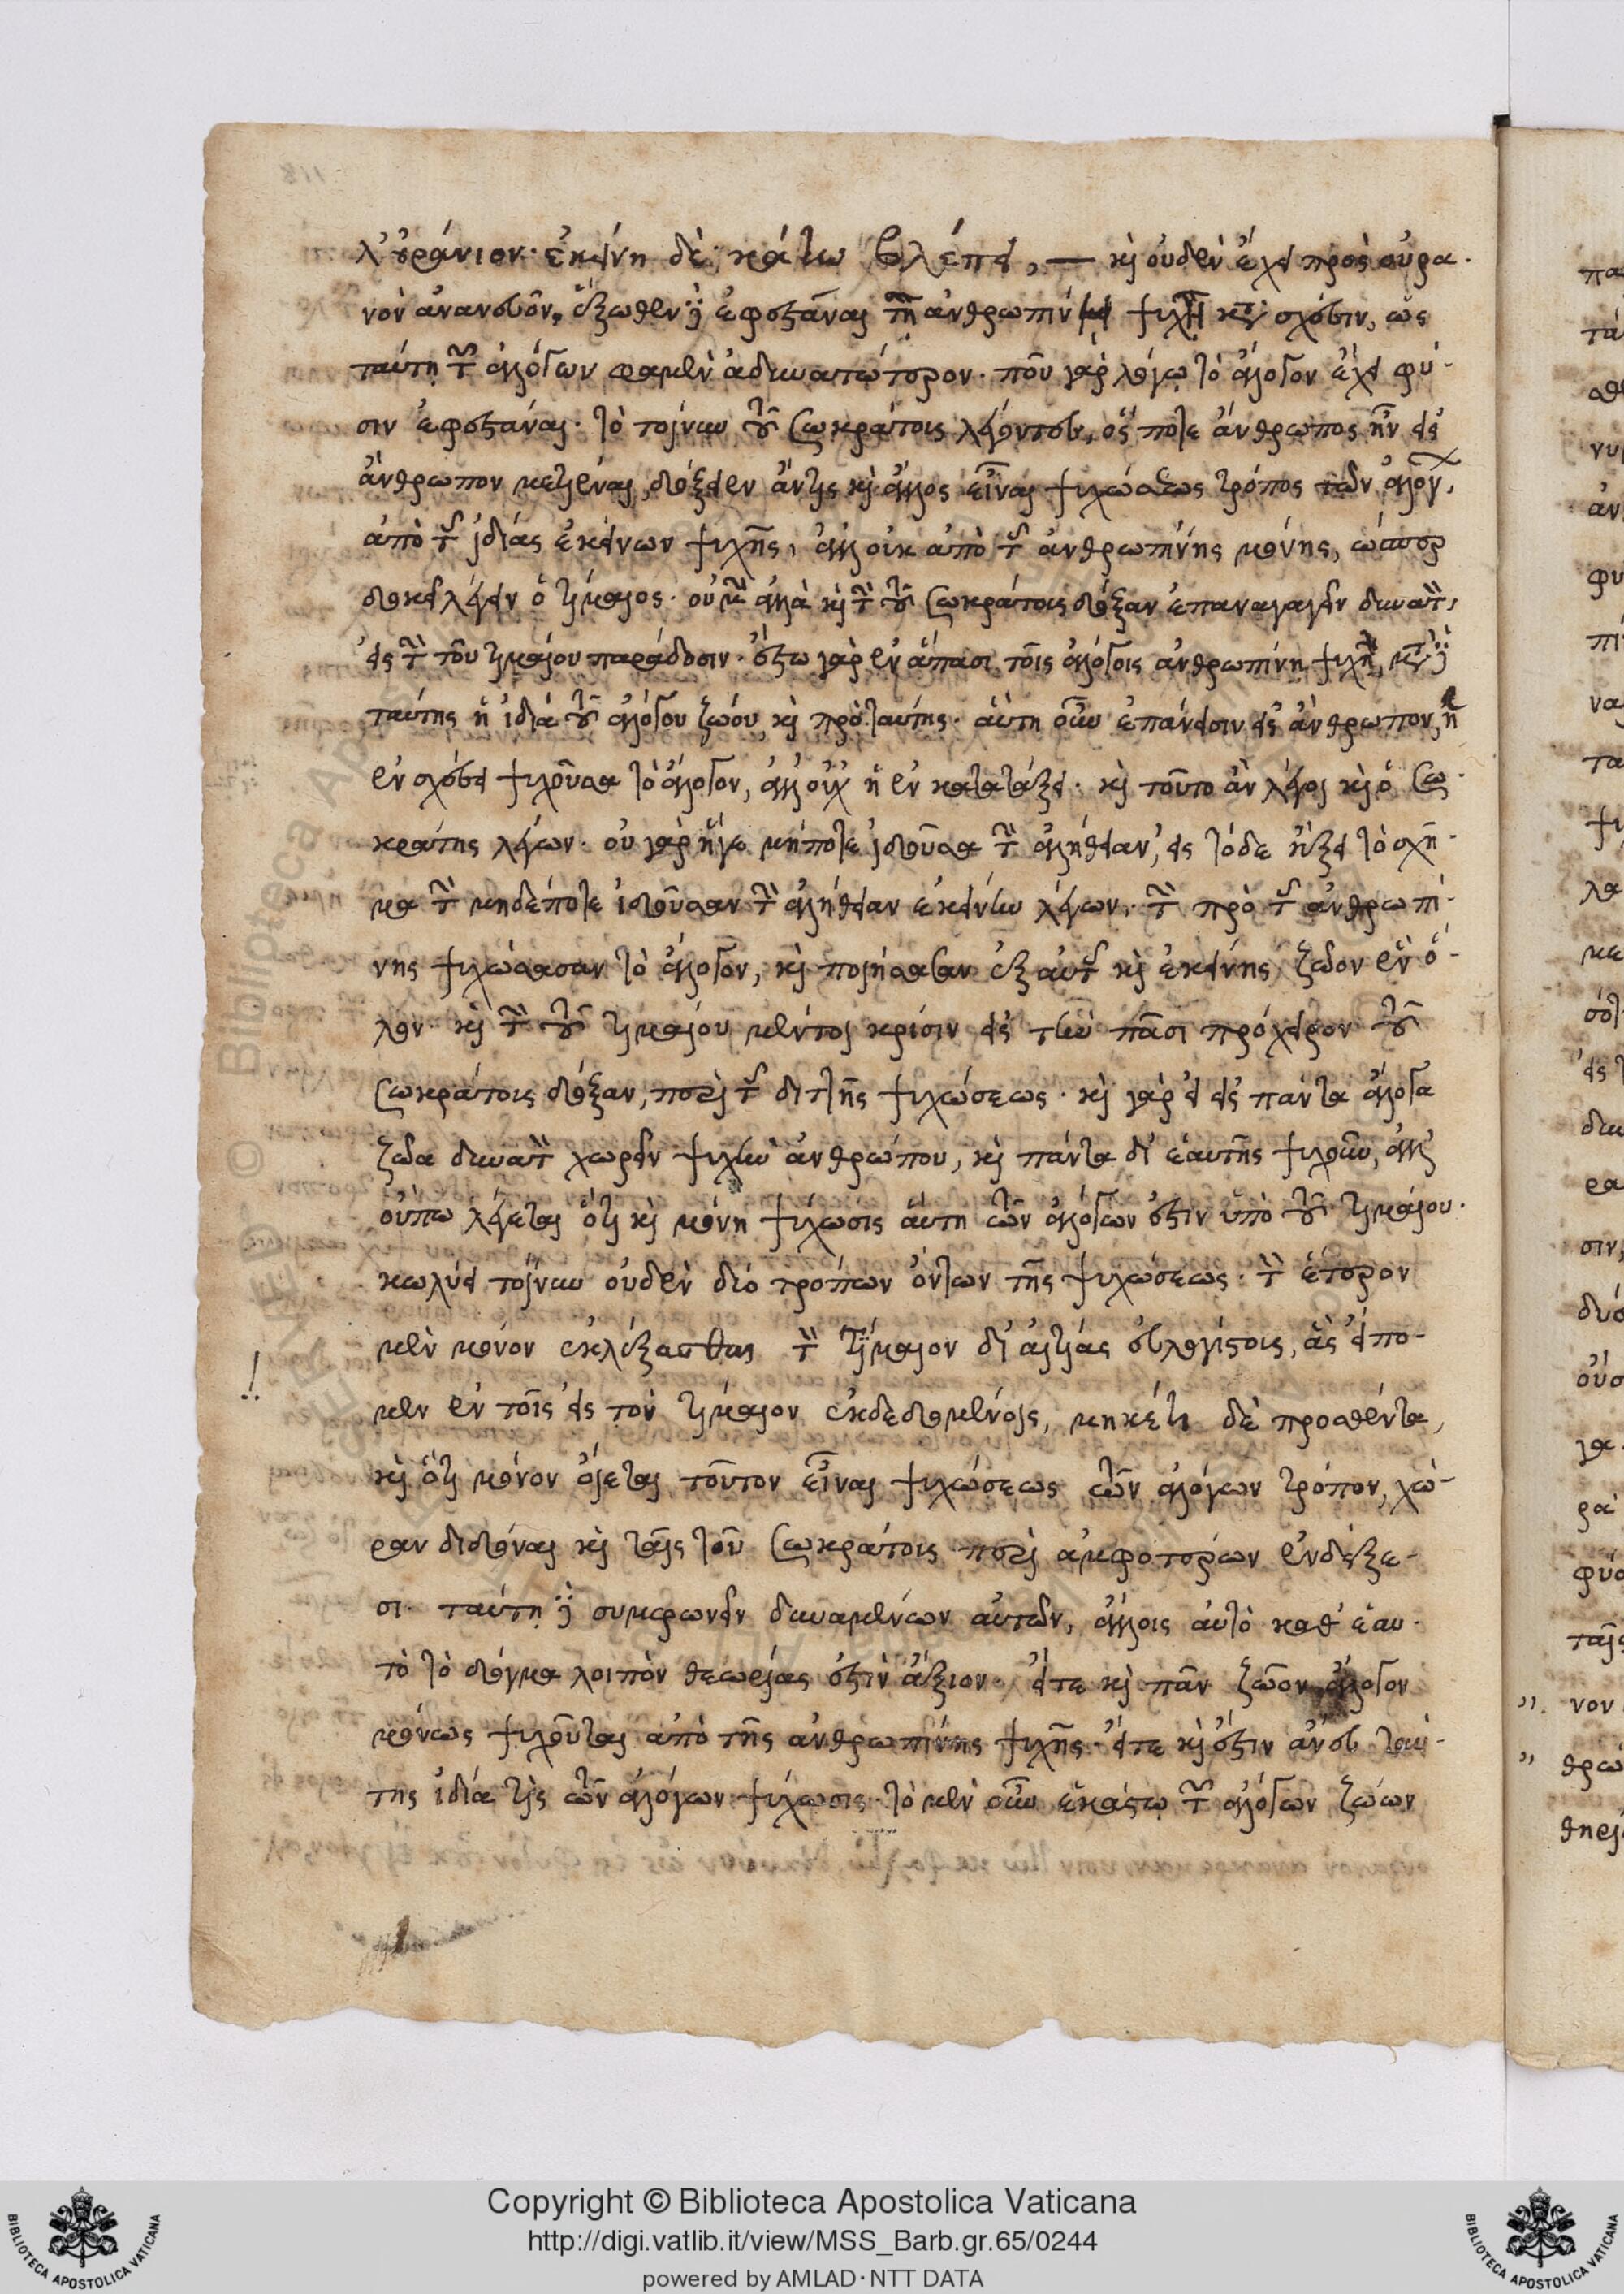 λ' οὐράνιον· ἐκείνη δὲ κάτω βλέπει, — καὶ οὐδὲν ἔχει πρὸς οὐρα-
νὸν ἀνανεῦον. ἔξωθεν ἐφεστᾶναι τῇ ἀνθρωπίν ψυχῇ κατὰ σχέσιν, ὡς
ταύτῃ τῶν ἀλόγων φαμὲν ἀδυνατώτερον. ποῦ γὰρ λόγῳ τὸ ἄλογον ἔχει φύ-
σιν ἐφεστάναι. τὸ τοίνυν τοῦ Σωκράτους λέγοντος, ὅς ποτε ἄνθρωπος ἦν εἰς
ἄνθρωπον μετιέναι, δόξειεν ἄν τις καὶ ἄλλος εἶναι ψυχώσεως τρόπος τῶν ἀλόγων,
ἀπὸ τῆς ἰδίας ἐκείνων ψυχῆς, ἀλλ' οὐκ ἀπὸ τῆς ἀνθρωπίνης μόνης, ὥσπερ
δοκεῖ λέγειν ὁ τίμαιος. οὐ μὴν ἀλλὰ καὶ τὴν τοῦ Σωκράτους δόξαν ἐπαναγαγεῖν δυνατὸν,
εἰς τὴν τοῦ τιμαίου παράδοσιν. ἔστω γὰρ ἐν ἅπασι τοῖς ἀλόγοις ἀνθρωπίνη ψυχὴ, μετὰ
ταύτης ἡ ἰδία τοῦ ἀλόγου ζώου, καὶ πρὸ ταύτης. αὕτη οὖν ἐπάνεισιν εἰς ἄνθρωπον, ἡ
ἐν σχέσει ψυχοῦσα τὸ ἄλογον, ἀλλ' οὐχ ἡ ἐν κατατάξει. καὶ τοῦτο ἂν λέγοι καὶ ὁ Σω-
κράτης λέγων. οὐ γὰρ ἥγε μήποτε ἰδοῦσα τὴν ἀλήθειαν, εἰς τόδε ἥξει τὸ σχῆ-
μα τὴν μηδέποτε ἰδοῦσαν τὴν ἀλήθειαν ἐκείνην λέγων. τὴν πρὸ τῆς ἀνθρωπί-
νης ψυχώσασαν τὸ ἄλογον, καὶ ποιήσασαν ἐξ αὐτῆς καὶ ἐκείνης ζῶον ἓν ὅ-
λον. καὶ τὴν τοῦ τιμαίου μέντοι κρίσιν εἰς τὴν πᾶσι πρόχειρον τοῦ
Σωκράτους δόξαν, περὶ τῆς διττῆς ψυχώσεως. καὶ γὰρ εἰ εἰς πάντα ἄλογα
ζῶα δυνατὸν χωρεῖν ψυχὴν ἀνθρώπου, καὶ πάντα δι' ἑαυτῆς ψυχοῦν, ἀλλ'
οὔπω λέγεται ὅτι καὶ μόνη ψύχωσις αὕτη τῶν ἀλόγων ἐστὶν ὑπὸ τοῦ τιμαίου.
κωλύει τοίνυν οὐδὲν δύο τρόπων ὄντων τῆς ψυχώσεως. τὸν ἕτερον
μὲν μόνον ἐκλέξασθαι τὸν τίμαιον δι' αἰτίας εὐλογίστους, ἃς εἴπο-
μεν ἐν τοῖς εἰς τὸν τίμαιον ἐκδεδομένοις, μηκέτι δὲ προσθέντα,
καὶ ὅτι μόνον οἴεται τοῦτον εἶναι ψυχώσεως τῶν ἀλόγων τρόπον, χώ-
ραν διδόναι καὶ ταῖς τοῦ Σωκράτους περὶ ἀμφοτέρων ἐνδείξε-
σι. ταύτῃ συμφωνεῖν δυναμένων αὐτῶν, ἄλλοις αὐτὸ καθ' ἑαυ-
τὸ τὸ δόγμα λοιπὸν θεωρίας ἐστὶν ἄξιον. εἴτε καὶ πᾶν ζῶον ἄλογον
μόνως ψυχοῦται ἀπὸ τῆς ἀνθρωπίνης ψυχῆς. εἴτε καὶ ἔστιν ἄνευ ταύ-
της ἰδία τις τῶν ἀλόγων ψύχωσις. τὸ μὲν οὖν ἑκάστῳ τῶν ἀλόγων ζώων
Copyright © Biblioteca Apostolica Vaticana
http://digi.vatlib.it/view/MSS_Barb.gr.65/0244
powered by AMLAD · NTT DATA